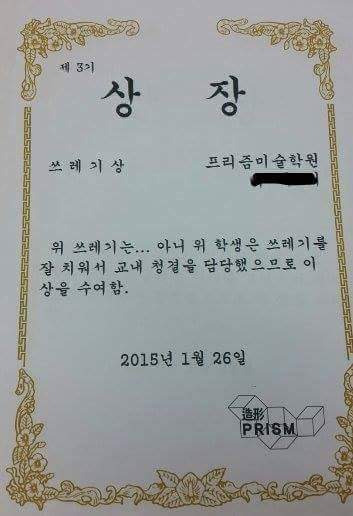 제 3기
상 장
쓰레기상 프리즘미술학원
위 쓰레기는... 아니 위 학생은 쓰레기를
잘 치워서 교내 청결을 담당했으므로 이
상을 수여함.
2015년 1월 26일
造形
PRISM